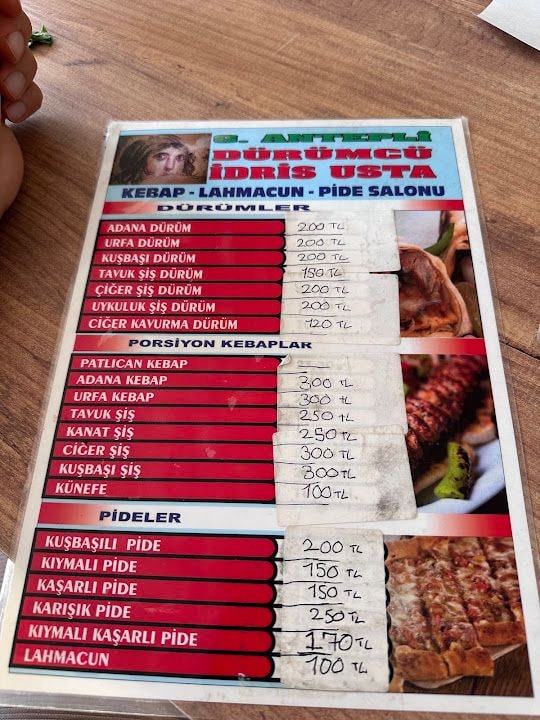 G. ANTEPLİ
DÜRÜMCÜ
İDRİS USTA
KEBAP - LAHMACUN - PİDE SALONU
DÜRÜMLER
ADANA DÜRÜM 200 TL
URFA DÜRÜM 200 TL
KUŞBAŞI DÜRÜM 200 TL
TAVUK ŞİŞ DÜRÜM 150 TL
ÇİĞER ŞİŞ DÜRÜM 200 TL
UYKULUK ŞİŞ DÜRÜM 200 TL
CİĞER KAVURMA DÜRÜM 120 TL
PORSİYON KEBAPLAR
PATLICAN KEBAP
ADANA KEBAP 300 TL
URFA KEBAP 300 TL
TAVUK ŞİŞ 250 TL
KANAT ŞİŞ 250 TL
CİĞER ŞİŞ 300 TL
KUŞBAŞI ŞİŞ 300 TL
KÜNEFE 100 TL
PİDELER
KUŞBAŞILI PİDE 200 TL
KIYMALI PİDE 150 TL
KAŞARLI PİDE 150 TL
KARIŞIK PİDE 250 TL
KIYMALI KAŞARLI PİDE 170 TL
LAHMACUN 100 TL